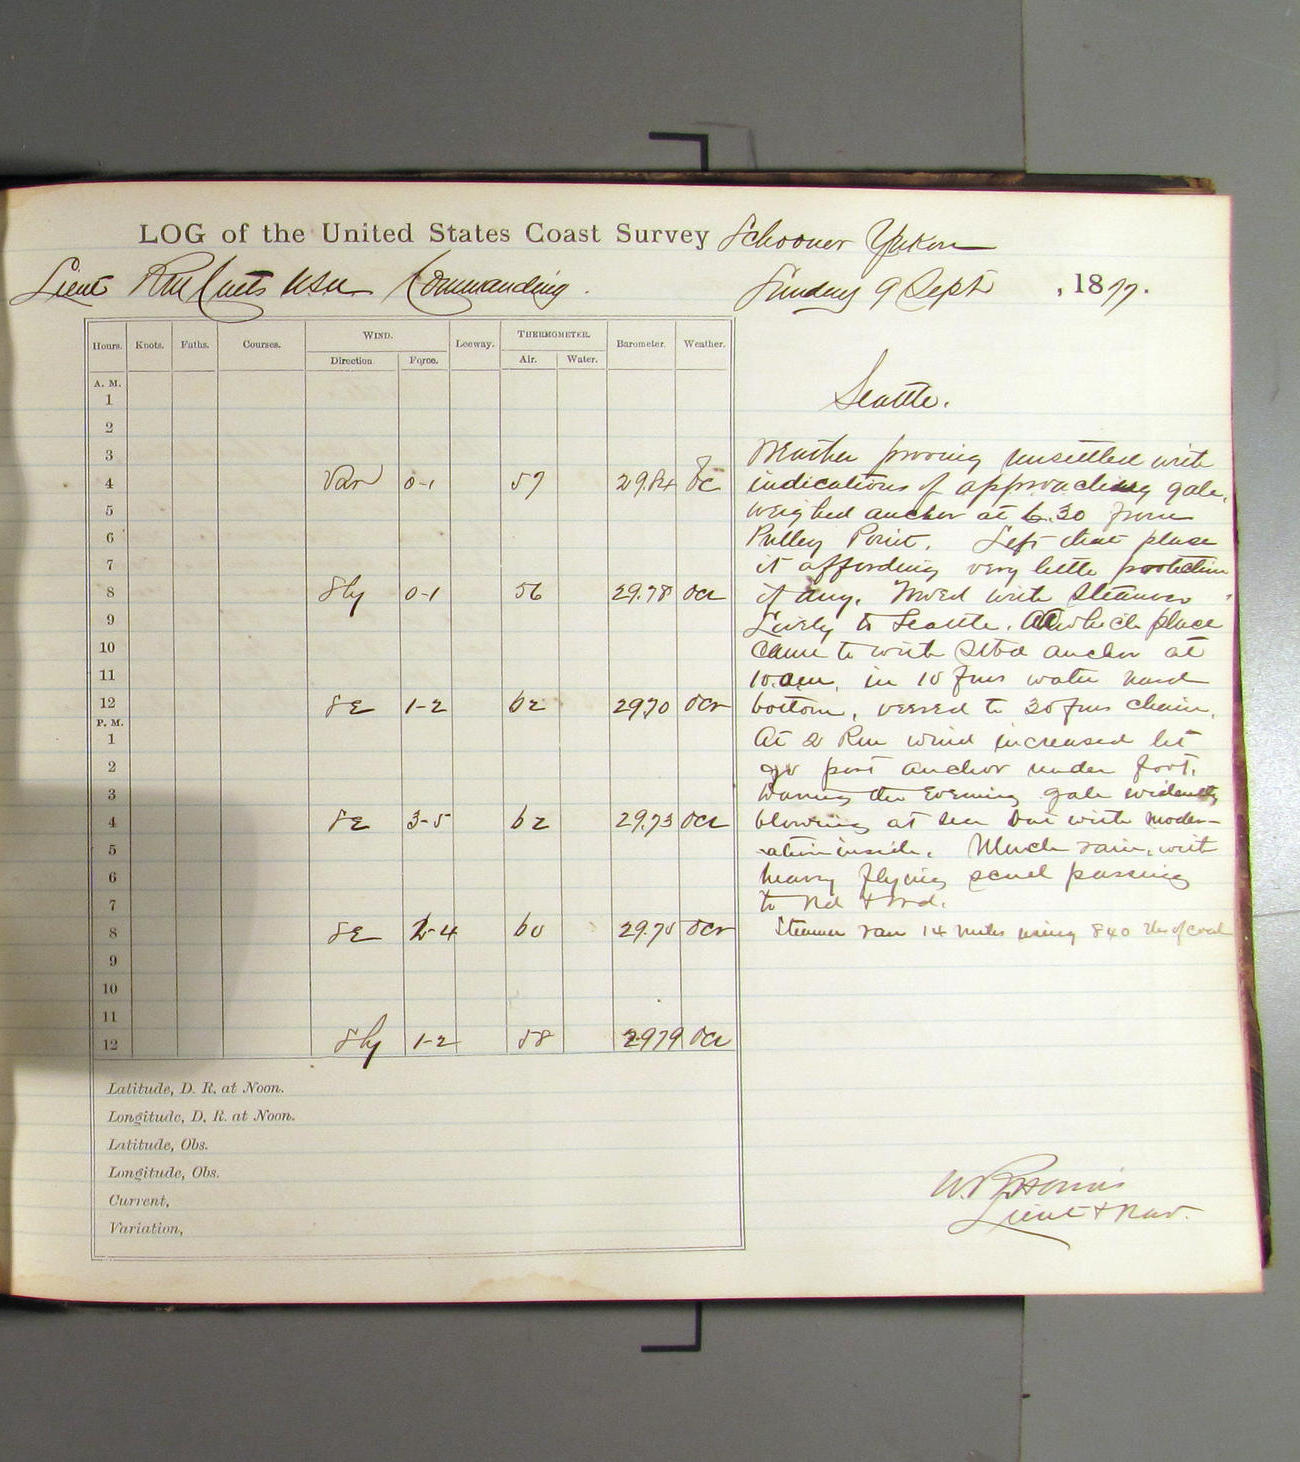 LOG of the United States Coast Survey Schooner Yukon
Lieut R M Cutts USN Commanding. Sunday 9 Sept, 1877.
Hours. Knots. Faths. Courses. WIND. Leeway. THERMOMETER. Barometer. Weather.
Direction. Force. Air. Water.
A. M.
1
2
3
4 Var 0-1 57 29.84 oc
5
6
7
8 Sly 0-1 56 29.78 ocr
9
10
11
12 SE 1-2 62 29.70 ocr
P. M.
1
2
3
4 SE 3-5 62 29.73 ocr
5
6
7
8 SE 2-4 60 29.75 ocr
9
10
11
12 Sly 1-2 58 2979 ocr
Latitude, D. R. at Noon.
Longitude, D. R. at Noon.
Latitude, Obs.
Longitude, Obs.
Current,
Variation,
Seattle.
Weather proving unsettled with
indications of approaching gale,
weighed anchor at 6.30 from
Pulley Point. Left that place
it affording very little protection
if any. Towed with steamer
Lively to Seattle. At which place
came to with Stbd anchor at
10. am, in 10 fms water hard
bottom, veered to 30 fms chain.
At 2 Pm wind increased let
go port anchor under foot.
During the Evening gale evidently
blowing at sea but with moder-
ation inside. Much rain, with
heavy flying scud passing
to Nd & Wd.
Steamer ran 14 miles using 840 lbs of coal
Lieut & Nav.